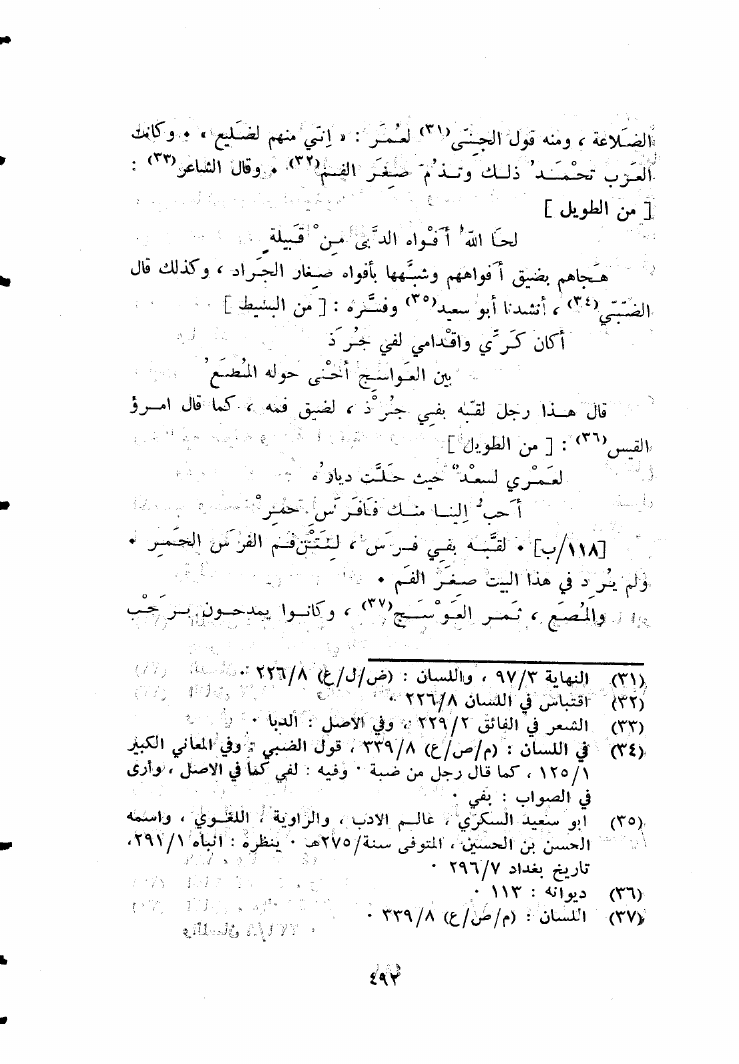 الضَّلاعة ، ومنه قول الجِنّي(٣١) لعُمَر : « إنّي منهم لضَليع » • وكانت
العَرَب تحْمَد ذلك وتذُم صِغَر الفم(٣٢) • وقال الشاعر(٣٣) :
[ من الطويل ]
لحَا الله أفْواه الدَّبى مِن قَبيلة
هجاهم بضيق أفواههم وشبَّهها بأفواه صغار الجَراد ، وكذلك قال
الضَّبّي(٣٤) ، أنشدنا أبو سعيد(٣٥) وفسَّره : [ من البسيط ]
أكان كَرّي واقْدامي لفي جُرَذ
بين العَواسِج أحْنى حوله المُصَع
قال هذا رجل لقبّه بفي جُرَذ ، لضيق فمه ، كما قال امرؤ
القيس(٣٦) : [ من الطويل ]
لعَمْري لسعْد حيث حَلَّت ديارُه
أحبّ إلينا منك فافَرَس حَمِر
[١١٨/ب] • لقَّبه بفي فرس ، لِنَتْن فم الفرس الحَمِر •
ولم يُرد في هذا البيت صِغَر الفم •
والمُصَع ، ثمر العَوْسَج(٣٧) ، وكانوا يمدحون برَحْب
(٣١) النهاية ٩٧/٣ ، واللسان : (ض/ل/ع) ٢٢٦/٨ •
(٣٢) اقتباس في اللسان ٢٢٦/٨ •
(٣٣) الشعر في الفائق ٢٢٩/٢ ، وفي الاصل : الدبا •
(٣٤) في اللسان : (م/ص/ع) ٣٣٩/٨ ، قول الضبي ، وفي المعاني الكبير
١٢٥/١ ، كما قال رجل من ضبة • وفيه : لفي كما في الاصل ، وأرى
في الصواب : بفي •
(٣٥) ابو سعيد السكري ، عالم الادب ، والراوية ، اللغوي ، واسمه
الحسن بن الحسين ، المتوفى سنة/٢٧٥هـ • ينظر : انباه ٢٩١/١ ،
تاريخ بغداد ٢٩٦/٧ •
(٣٦) ديوانه : ١١٣ •
(٣٧) اللسان : (م/ص/ع) ٣٣٩/٨ •
٤٩٢